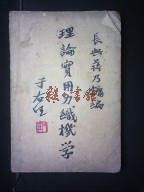 長興蔣乃鏞編
理論實用力織機学
于右任